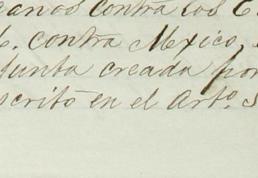 canos contra los E.
contra Mexico,
Junta creada por
scrito en el Arto.